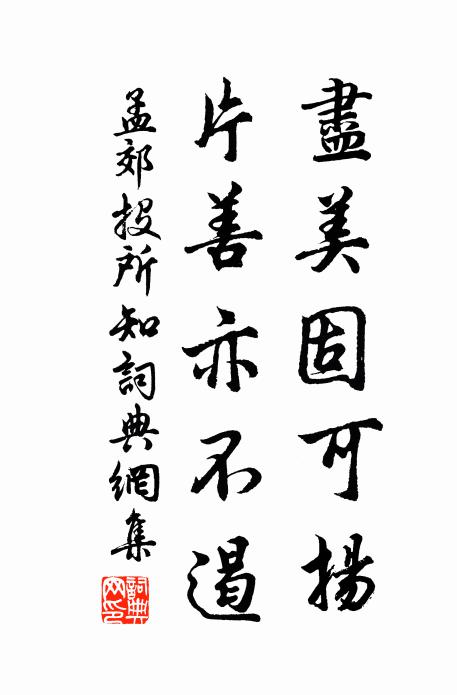 盡美固可揚
片善亦不遏
孟郊投所知詞典網集
詞典
网印